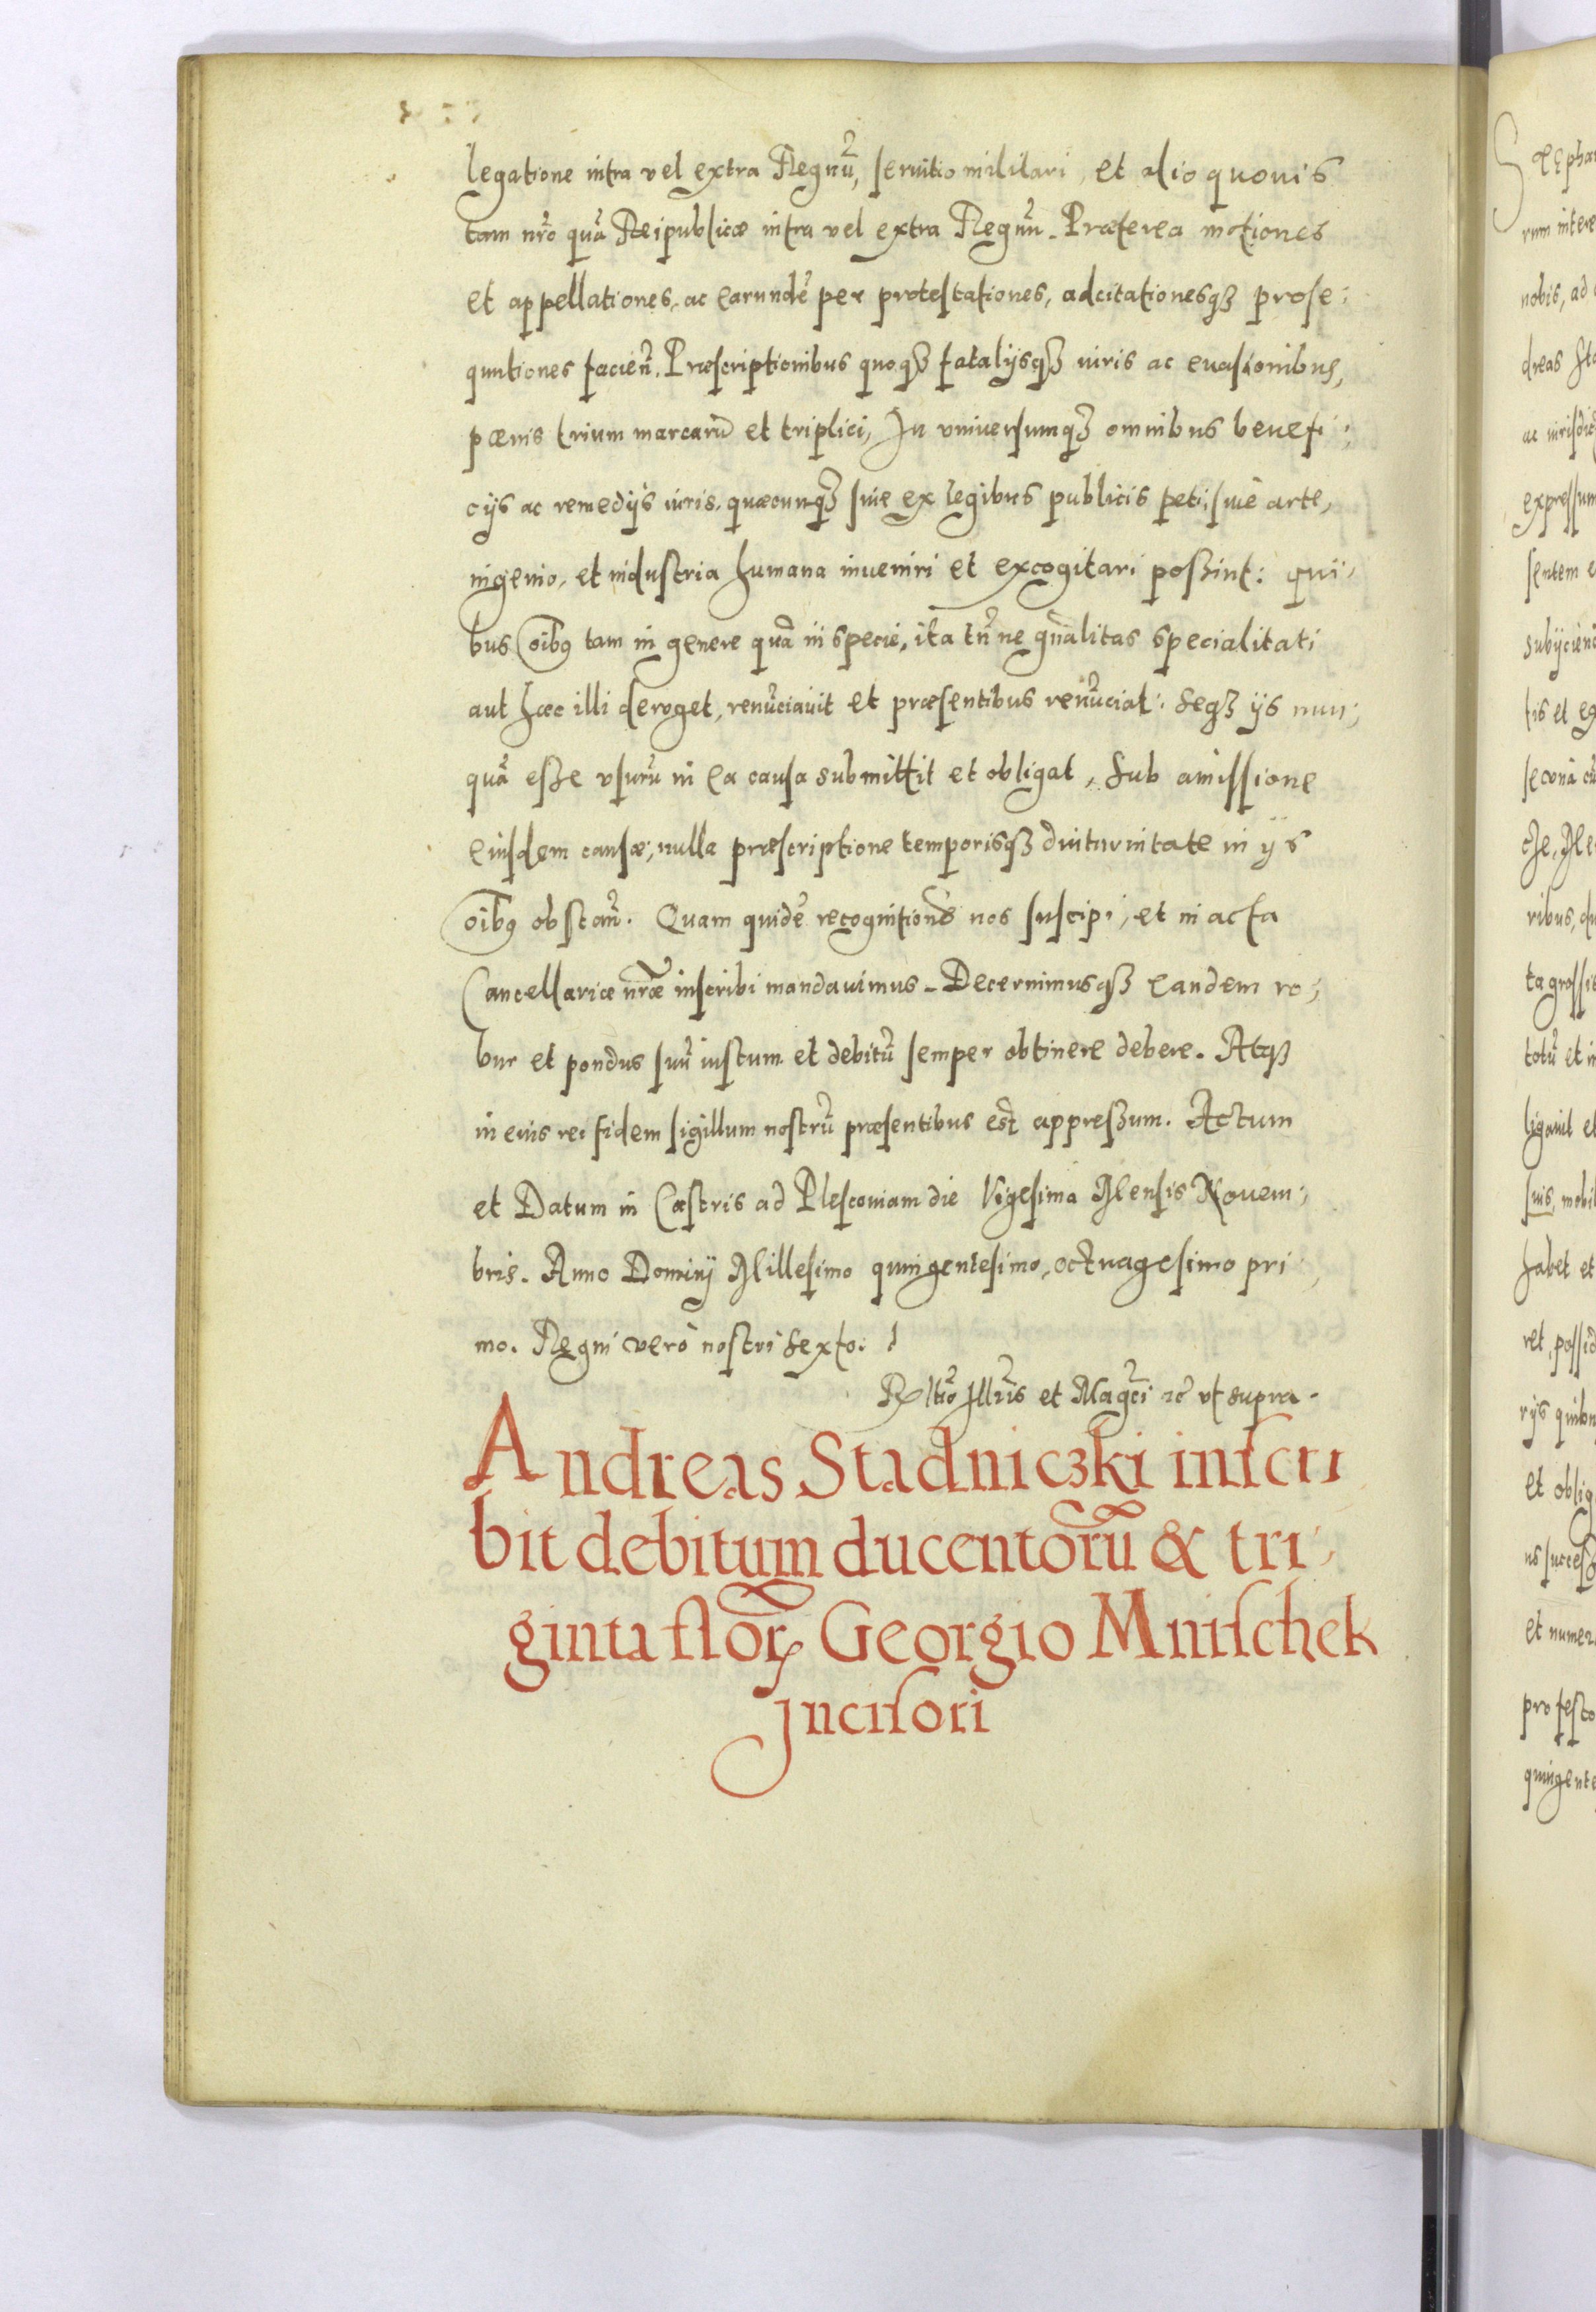 legatione intra vel extra Regnũ, seruitio militari, et alio quouis
tam nrõ quã Reipublicæ intra vel extra Regnũ. Præterea motiones
et appellationes, ac earundẽ per protestationes, adcitationesqȝ prose:
quutiones facieñ. Præscriptionibus quoqȝ fatalijsqȝ iuris ac euasionibus,
pœnis trium marcarũ et triplici, In vniuersumqȝ omnibus benefi:
cijs ac remedijs iuris, quæcunqȝ siue ex legibus publicis peti, siuè arte,
ingenio, et industria humana inueniri et excogitari possint: qui,
bus oibq tam in genere quã in specie, ita tñ ne gñalitas specialitati
aut hæc illi deroget, renũciauit et præsentibus renũciat: Seqȝ ijs nun:
quã esse vsurũ in ea causa submittit et obligat, Sub amissione
eiusdem causæ; nulla præscriptione temporisqȝ diuturnitate in ijs
oibq obstañ. Quam quidẽ recognitionẽ nos suscipi, et in acta
Cancellariæ nræ inscribi mandauimus. Decernimusqȝ eandem ro:
bur et pondus suũ iustum et debitũ semper obtinere debere. Atqȝ
in eius rei fidem sigillum nostrũ præsentibus est appressum. Actum
et Datum in Castris ad Plescouiam die Vigesima Mensis Nouem:
bris. Anno Dominij Millesimo quingentesimo, octuagesimo pri
mo. Regni verò nostri Sexto.
Rltiõ Illris et Magci &c vt supra.
Andreas Stadniczki inscri
bit debitum ducentorũ & tri,
ginta flor Georgio Mnischek
Incisori